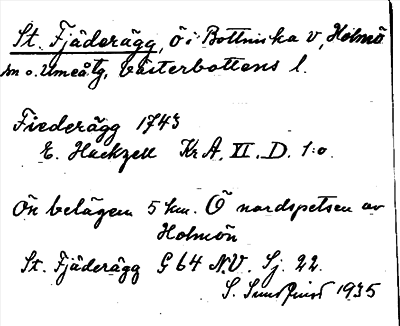 St. Fjäderägg, ö i Bottniska v, Holmö
sn o. Umeå tg, Västerbottens l.
Fiederägg 1743
E. Hackzell Kr A. VI. D. 1:o
Ön belägen 5 km. Ö nordspetsen av
Holmön
St. Fjäderägg G 64 N.V. Sj. 22.
S. 1935